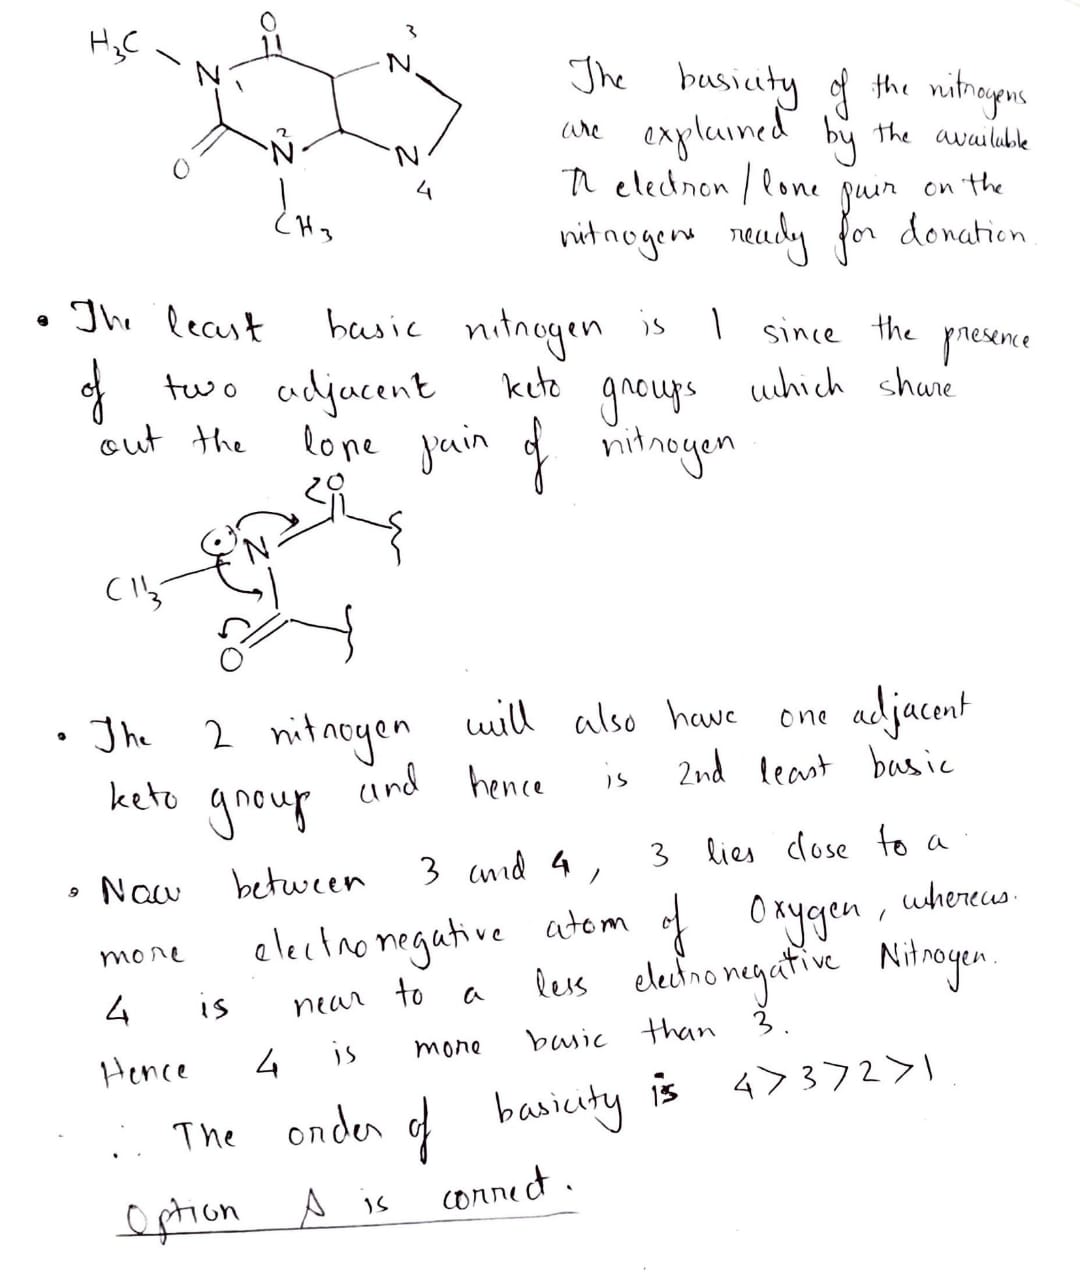 H₃C
O
3
N
1
N
2
N
O
N
4
CH₃
The basicity of the nitrogens
are explained by the available
π electron / lone pair on the
nitrogens ready for donation
• The least basic nitrogen is 1 since the presence
of two adjacent keto groups which share
out the lone pair of nitrogen
O
N
CH₃
O
• The 2 nitrogen will also have one adjacent
keto group and hence is 2nd least basic
• Now between 3 and 4, 3 lies close to a
more electronegative atom of Oxygen, whereas
4 is near to a less electronegative Nitrogen.
Hence 4 is more basic than 3.
∴ The order of basicity is 4>3>2>1
Option A is correct.